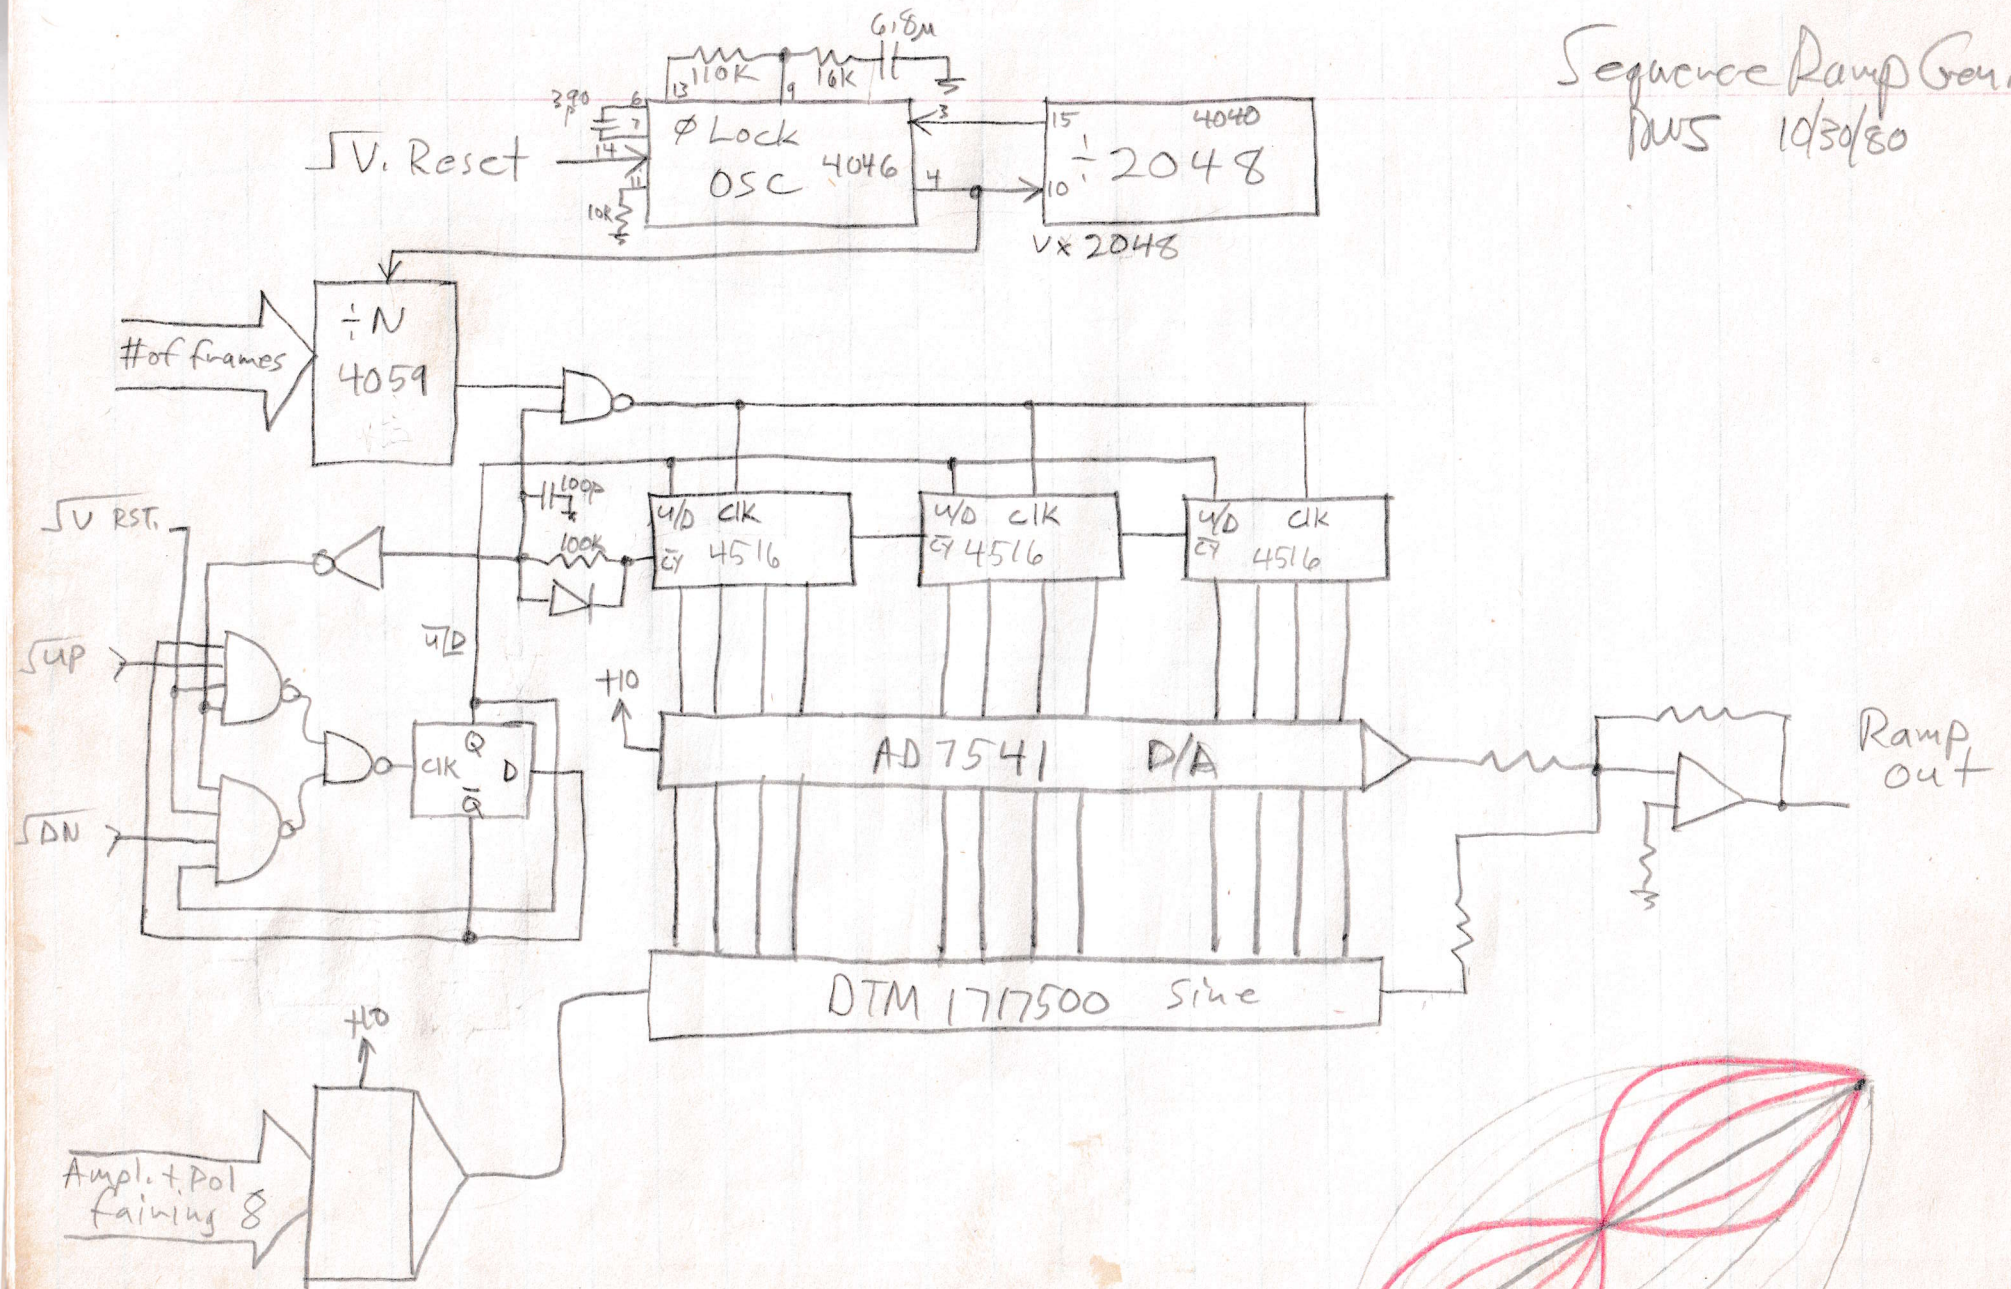 Sequence Ramp Gen.
DWS 10/30/80
6.8µ
110K
16K
13
9
390
p
6
7
14
11
10K
√V. Reset
Ø Lock
4046
OSC
3
4
15
10
4040
÷2048
V x 2048
÷N
4059
# of frames
100p
100K
U/D Clk
CY 4516
U/D Clk
CY 4516
U/D Clk
CY 4516
√V RST.
√UP
√DN
U/D
Clk
Q
D
Q
+10
AD7541 D/A
Ramp
out
DTM 1717500 Sine
+10
Ampl. + Pol
fairing 8